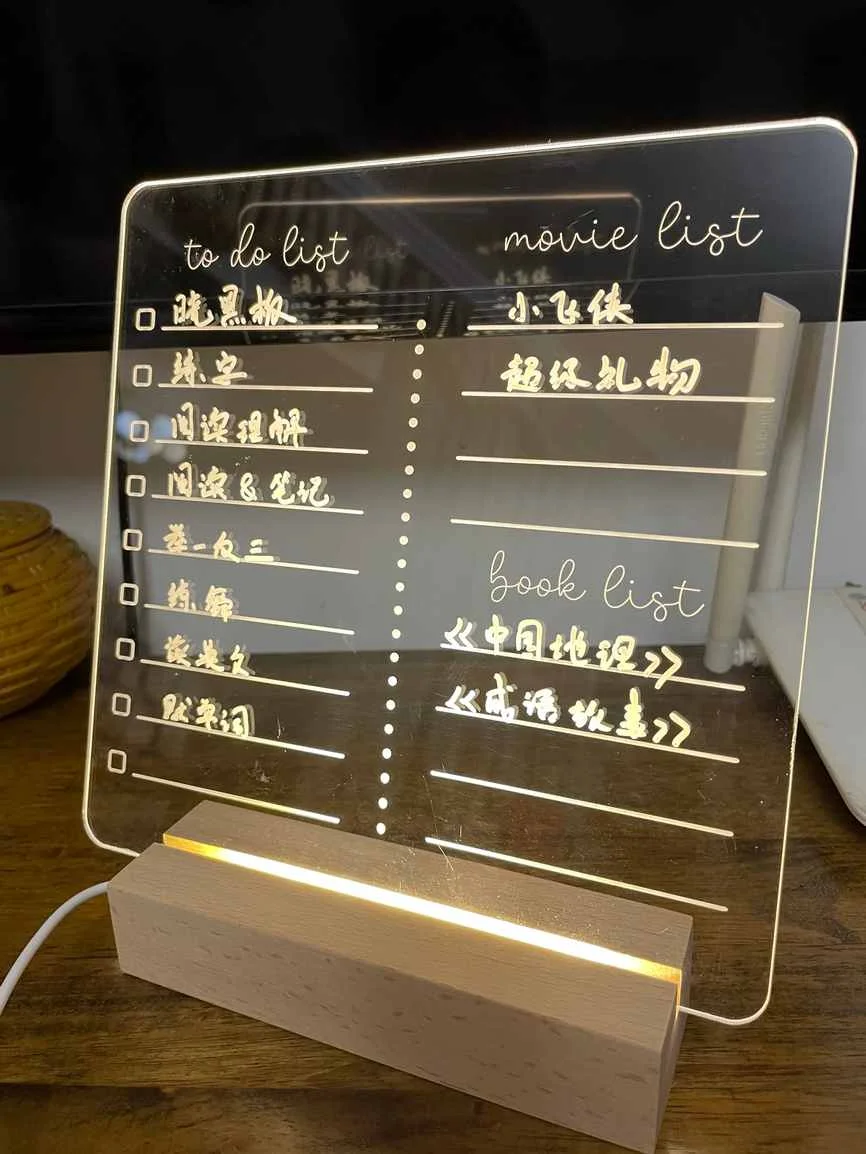 to do list
晓黑板
练字
阅读理解
阅读 & 笔记
举一反三
练琴
读英文
默单词
movie list
小飞侠
超级礼物
book list
《中国地理》
《成语故事》